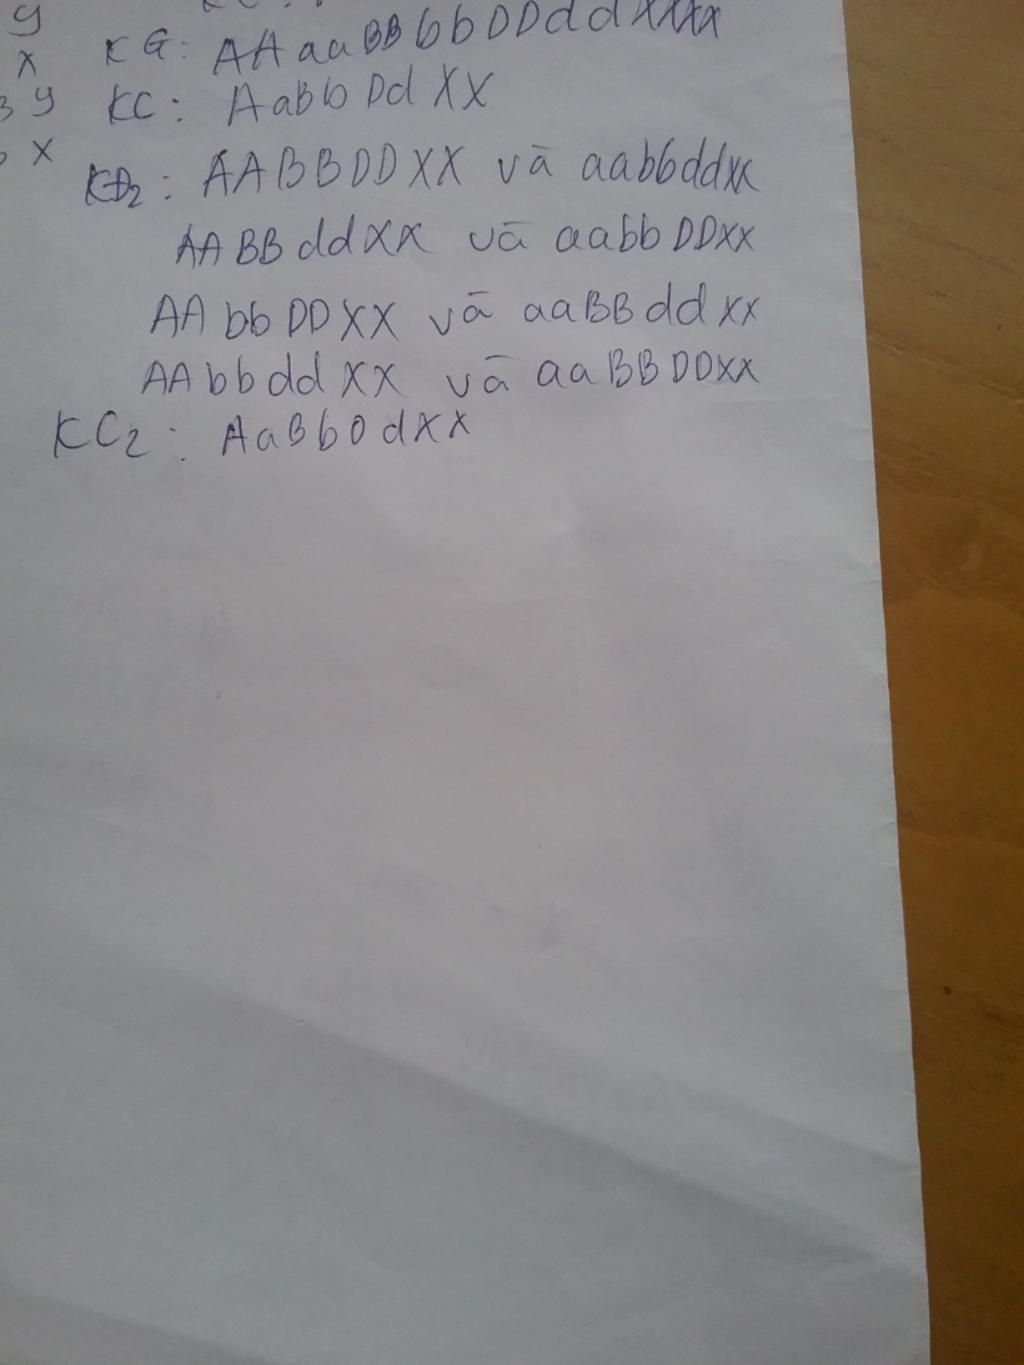 y
x KG: AAaaBBbbDDddXXXX
y KC: AaBb DdXX
x
KĐ2: AABBDDXX và aabbddxx
AABBddXX và aabbDDXX
AAbbDDXX và aaBBddXX
AAbbddXX và aaBBDDXX
KC2: AaBbDdXX